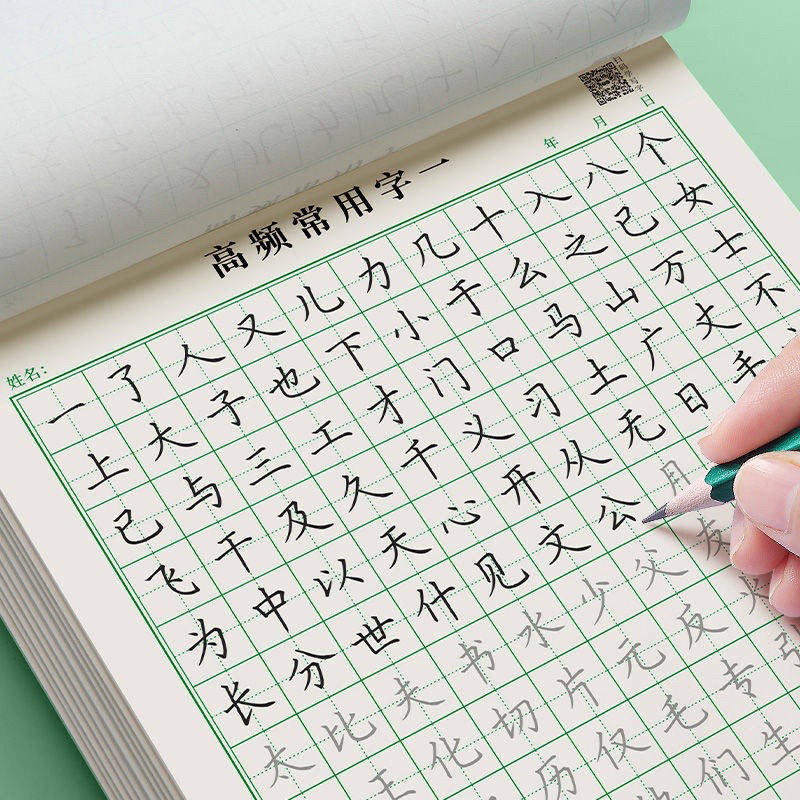 扫码学写字
高频常用字一
年 月 日
姓名:
一了人又儿力几十入八个
上大子也下小于么之己女
已与三工才门口马山万士
飞干及久千义习土广丈不
为中以天心开从无日手
长分世什见文公月
太比夫书水少父友
王化切片元反火
历仅毛专引
们生